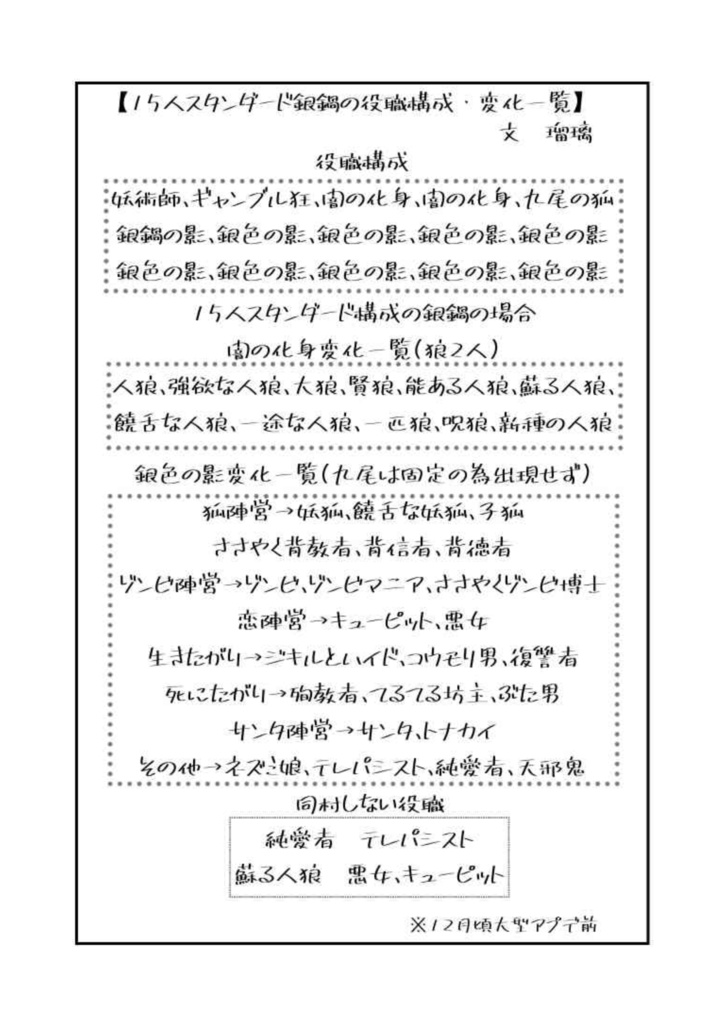 【15人スタンダード銀鍋の役職構成・変化一覧】
文 瑠璃
役職構成
妖術師、ギャンブル狂、闇の化身、闇の化身、九尾の狐
銀鍋の影、銀色の影、銀色の影、銀色の影、銀色の影
銀色の影、銀色の影、銀色の影、銀色の影、銀色の影
15人スタンダード構成の銀鍋の場合
闇の化身変化一覧(狼2人)
人狼、強欲な人狼、大狼、賢狼、能ある人狼、蘇る人狼、
饒舌な人狼、一途な人狼、一匹狼、呪狼、新種の人狼
銀色の影変化一覧(九尾は固定の為出現せず)
狐陣営→妖狐、饒舌な妖狐、子狐
ささやく背教者、背信者、背徳者
ゾンビ陣営→ゾンビ、ゾンビマニア、ささやくゾンビ博士
恋陣営→キューピット、悪女
生きたがり→ジキルとハイド、コウモリ男、復讐者
死にたがり→殉教者、てるてる坊主、ぶた男
サンタ陣営→サンタ、トナカイ
その他→ネズミ娘、テレパシスト、純愛者、天邪鬼
同村しない役職
純愛者 テレパシスト
蘇る人狼 悪女、キューピット
※12月頃大型アプデ前